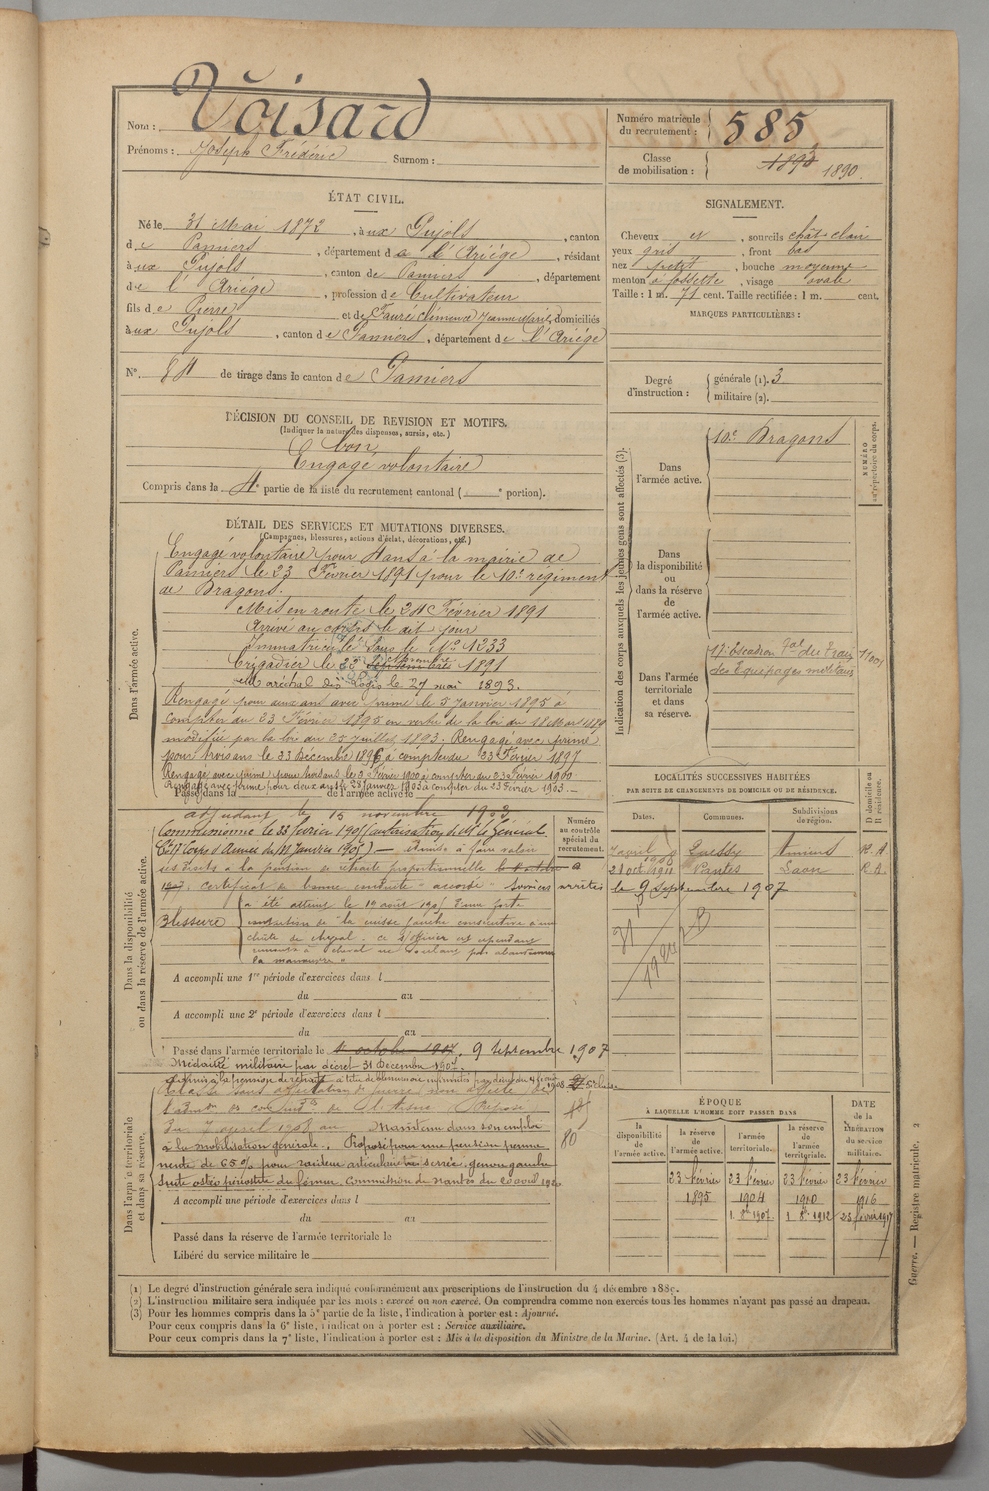 Nom : Voisard
Prénoms : Joseph Frédéric Surnom :
Numéro matricule du recrutement : 585
Classe de mobilisation : 1893 1890
ÉTAT CIVIL.
Né le 31 Mai 1872, à ux Pujols, canton
de Pamiers, département de l'Ariège, résidant
à ux Pujols, canton de Pamiers, département
de l'Ariège, profession de Cultivateur
fils de Pierre et de Fauré Clémence Jeanne Marie, domiciliés
à ux Pujols, canton de Pamiers, département de l'Ariège
N° 84 de tirage dans le canton de Pamiers
SIGNALEMENT.
Cheveux et, sourcils chât-clair
yeux gris, front bas
nez petit, bouche moyenne
menton à fossette, visage ovale
Taille : 1 m. 71 cent. Taille rectifiée : 1 m. cent.
MARQUES PARTICULIÈRES :
Degré d'instruction : générale (1). 3
militaire (2).
DÉCISION DU CONSEIL DE REVISION ET MOTIFS.
(Indiquer la nature des dispenses, sursis, etc.)
bon
Engagé volontaire
Compris dans la 4e partie de la liste du recrutement cantonal ( e portion).
DÉTAIL DES SERVICES ET MUTATIONS DIVERSES.
(Campagnes, blessures, actions d'éclat, décorations, etc.)
Dans l'armée active.
Engagé volontaire pour 4 ans à la mairie de
Pamiers le 23 Février 1891 pour le 10e régiment
de Dragons.
Mis en route le 24 Février 1891
Arrivé au corps le dit jour
Immatriculé sous le No 1233
Brigadier le 22 Septembre Novembre 1891
Maréchal des Logis le 27 mai 1893.
Rengagé pour deux ans avec prime le 5 Janvier 1895 à
compter du 23 Février 1895 en vertu de la loi du 18 Mars 1889
modifiée par la loi du 25 Juillet 1893. Rengagé avec prime
pour trois ans le 23 Décembre 1896 à compter du 23 Février 1897
Rengagé avec prime pour trois ans le 5 Février 1900 à compter du 23 Février 1900
Rengagé avec prime pour deux ans le 28 Janvier 1903 à compter du 23 Février 1903.
Passé dans la de l'armée active le
Indication des corps auxquels les jeunes gens sont affectés (3).
NUMÉRO au répertoire du corps.
Dans l'armée active. 10e Dragons
Dans la disponibilité ou dans la réserve de l'armée active.
Dans l'armée territoriale et dans sa réserve. 17e Escadron Tal du Train des Equipages militaires 11001
Dans la disponibilité ou dans la réserve de l'armée active.
adjudant le 15 novembre 1903
Commissionné le 23 février 1905 (autorisation de Mr le Général
Ct 17e Corps d'Armée du Janvier 1905) — Admis à faire valoir
ses droits à la pension de retraite proportionnelle le 1 octobre
1907. certificat de bonne conduite "accordé" Services arrêtés
le 9 Septembre 1907
Blessure
a été atteint le 19 août 1905 d'une forte
contusion de la cuisse gauche consécutive à une
chute de cheval. ce s/officier est cependant
remonté à cheval ne voulant pas abandonner
la manœuvre"
Numéro au contrôle spécial du recrutement.
A accompli une 1re période d'exercices dans l
du au
A accompli une 2e période d'exercices dans l
du au
Passé dans l'armée territoriale le 1 octobre 1907. 9 Septembre 1907
LOCALITÉS SUCCESSIVES HABITÉES
PAR SUITE DE CHANGEMENTS DE DOMICILE OU DE RÉSIDENCE.
Dates. Communes. Subdivisions de région. D domicile ou R résidence.
7 avril 1908 Quessy Amiens R. A
21 oct 1911 Nantes Laon R. A
Dans l'armée territoriale et dans sa réserve.
Médaille militaire par décret 31 Décembre 1907.
Classé sans affectation de guerre non affecté de
du 7 avril 1908 au Maintenu dans son emploi
à la mobilisation générale. Proposé pour une pension perma
nente de 65 % pour raideur articulaire très serrée, genou gauche
suite ostéo périostite du fémur. Commission de Nantes du 20 avril 1920
80
A accompli une période d'exercices dans l
du au
Passé dans la réserve de l'armée territoriale le
Libéré du service militaire le
ÉPOQUE
À LAQUELLE L'HOMME DOIT PASSER DANS
DATE de la LIBÉRATION du service militaire.
la disponibilité de l'armée active. la réserve de l'armée active. l'armée territoriale. la réserve de l'armée territoriale.
23 février 23 février 23 février 23 février
1895 1904 1910 1916
1 8bre 1907 1 8bre 1912 23 février 1917
Guerre. — Registre matricule. 2
(1) Le degré d'instruction générale sera indiqué conformément aux prescriptions de l'instruction du 4 décembre 1889.
(2) L'instruction militaire sera indiquée par les mots : exercé ou non exercé. On comprendra comme non exercés tous les hommes n'ayant pas passé au drapeau.
(3) Pour les hommes compris dans la 5e partie de la liste, l'indication à porter est : Ajourné.
Pour ceux compris dans la 6e liste, l'indication à porter est : Service auxiliaire.
Pour ceux compris dans la 7e liste, l'indication à porter est : Mis à la disposition du Ministre de la Marine. (Art. 4 de la loi.)